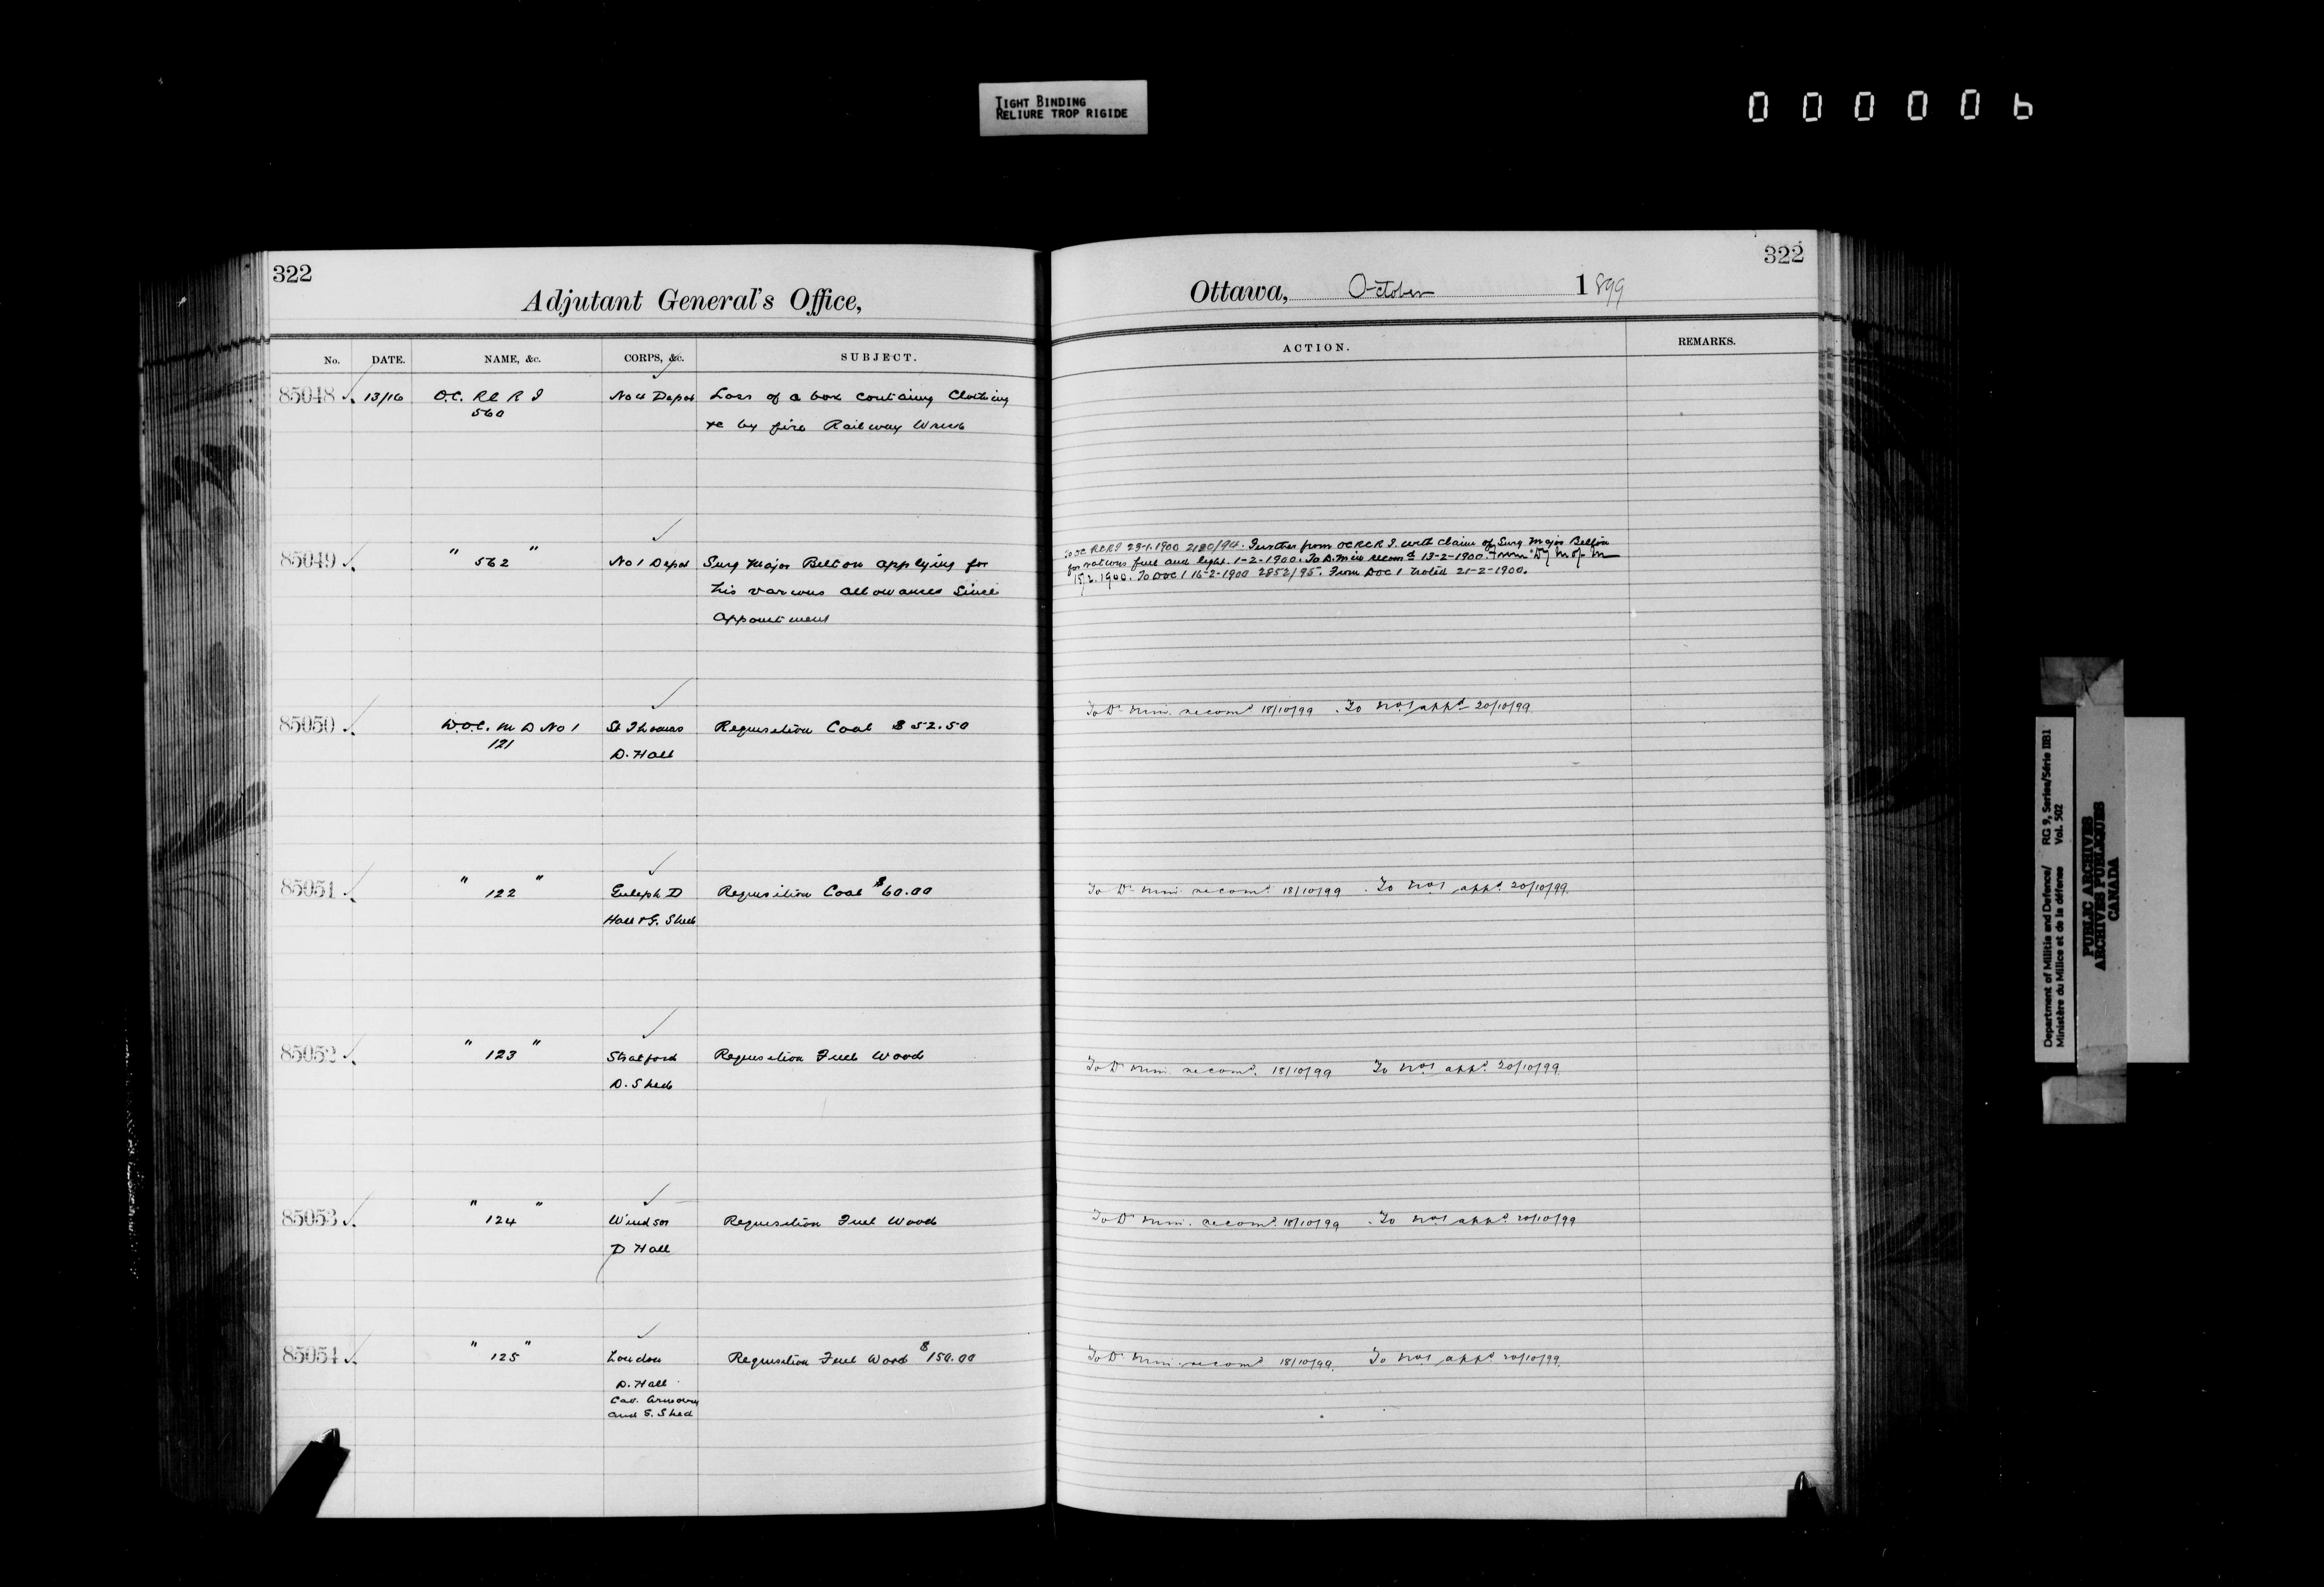 TIGHT BINDING
RELIURE TROP RIGIDE
000006
322
Adjutant General's Office,
No. DATE. NAME, &c. CORPS, &c. SUBJECT.
85048 13/16 O.C. R C R I No 4 Depot Loss of a box containing Clothing
560
&c by fire Railway Wreck
85049 " 562 " No 1 Depot Surg Major Belton applying for
his various allowances Since
appointment
85050 D.O.C. M D No 1 St Thomas Requisition Coal $52.50
121 D. Hall
85051 " 122 " Guelph D Requisition Coal $60.00
Hall & G. Shed
85052 " 123 " Stratford Requisition Fuel Wood
D. Shed
85053 " 124 " Windsor Requisition Fuel Wood
D Hall
85054 " 125 " London Requisition Fuel Wood $150.00
D. Hall
Cav. Armoury
and G. Shed
322
Ottawa, October 1899
ACTION. REMARKS.
To OC RCRI 23-1-1900 2180/94. Further from OCRCR I. with claim of Surg Major Belton
for rations fuel and light. 1-2-1900. To D. Min recomd 13-2-1900. From Dy M of M
15.2.1900. To DOC 1 16-2-1900 2852/95. From DOC 1 noted 21-2-1900.
To Dr Min. recomd 18/10/99. To appd 20/10/99.
To Dr Min. recomd 18/10/99. To appd 20/10/99.
To Dr Min. recomd. 18/10/99 To appd. 20/10/99.
To Dr Min. recomd. 18/10/99. To appd. 20/10/99
To Dr Min. recomd 18/10/99. To appd 20/10/99.
Department of Militia and Defence/ RG 9, Series/Série IIB1
Ministère du Milice et de la défense Vol. 502
PUBLIC ARCHIVES
ARCHIVES PUBLIQUES
CANADA